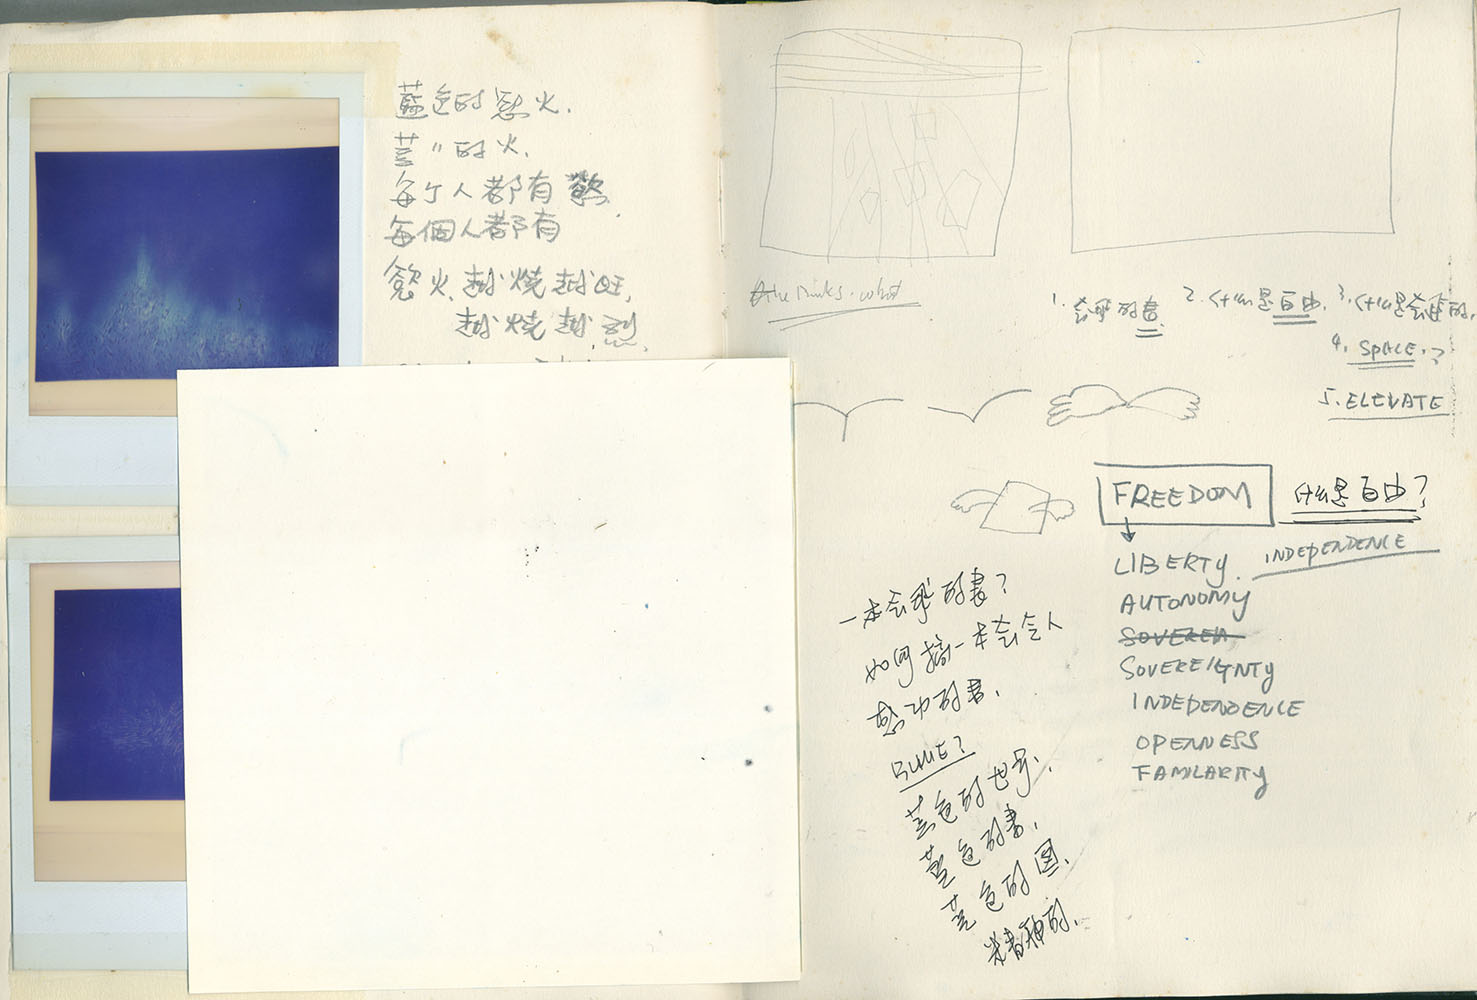 藍色的慾火.
芸〃的火.
每个人都有慾.
每個人都有
慾火.越燒越旺,
越燒越烈.
1. 会飛的書
2. 什么是自由.
3. 什么是会飛的.
4. SPACE.?
5. ELEVATE
FREEDOM
什么是自由?
LIBERTY.
INDEPENDENCE
AUTONOMY
SOVEREN
SOVEREIGNTY
INDEPENDENCE
OPENNESS
FAMILARITY
一本会飛的書?
如何搞一本会令人
感动的書.
BLUE?
芸色的世界.
藍色的書.
芸色的图.
精神的.